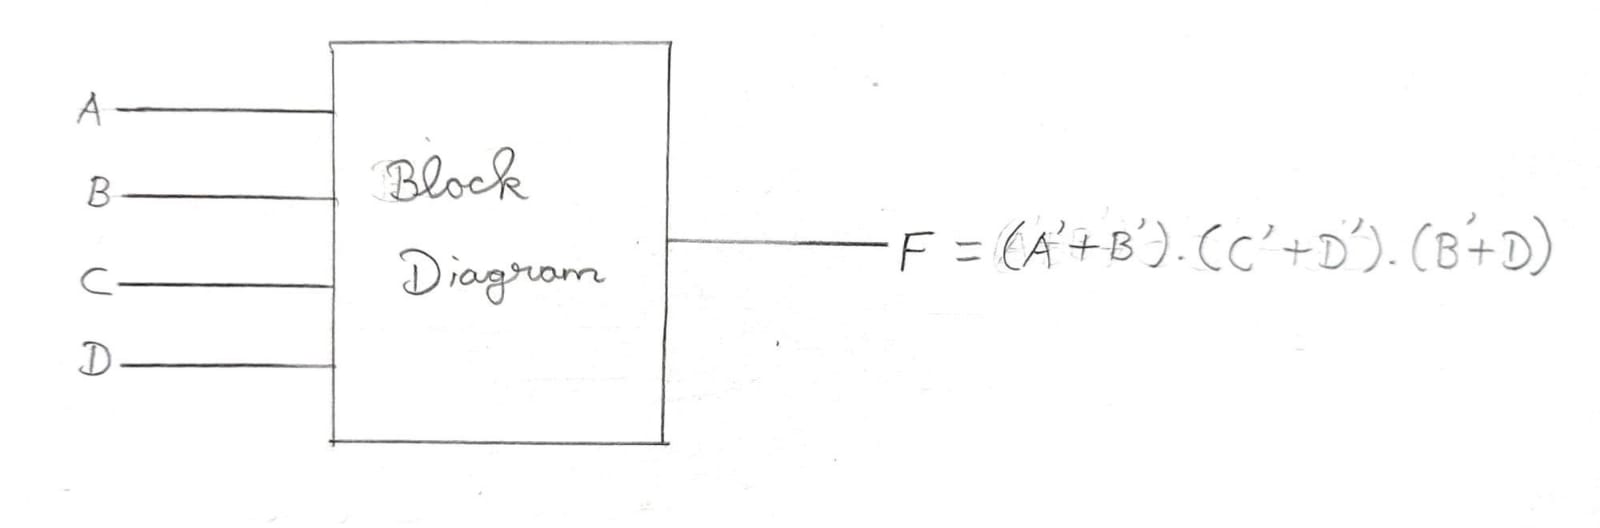 A
B
C
D
Block
Diagram
F = (A'+B').(C'+D').(B'+D)